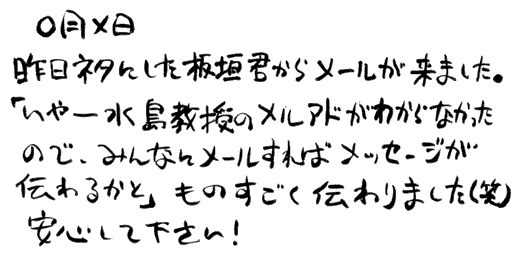 〇月×日
昨日ネタにした板垣君からメールが来ました。
「いやー水島教授のメルアドがわからなかった
ので、みんなにメールすればメッセージが
伝わるかと」ものすごく伝わりました(笑)
安心して下さい!